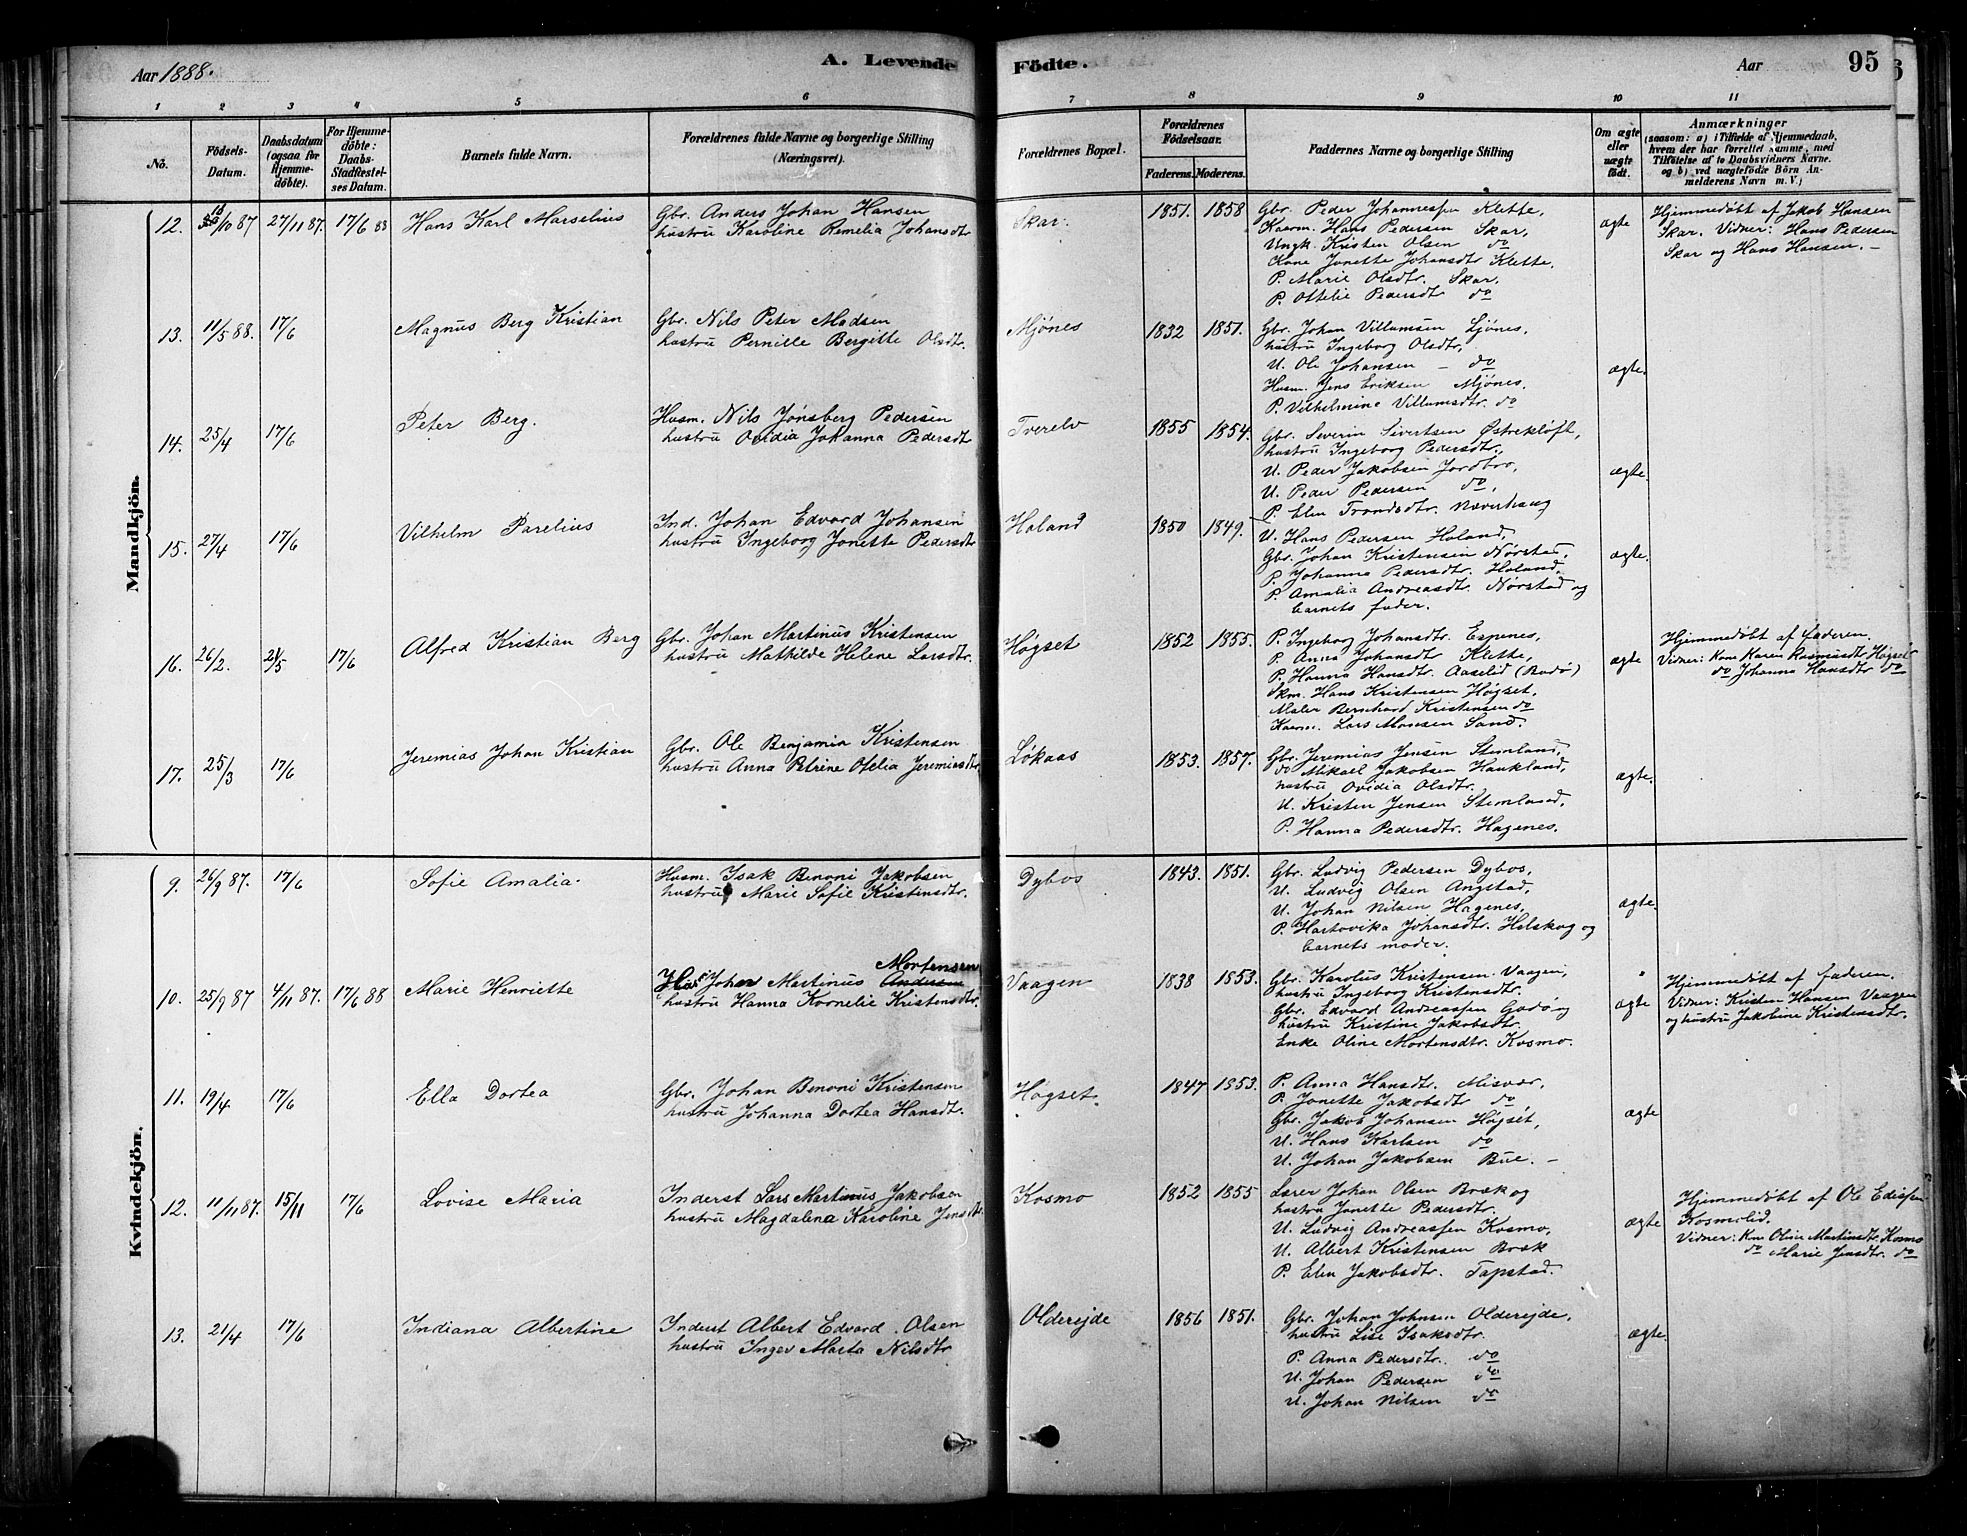 Aar 1888.
A. Levende Födte.
Aar
95
1 2 3 4 5 6 7 8 9 10 11
No.
Födsels-Datum.
Daabsdatum (ogsaa for Hjemme-döbte).
For Hjemme-döbte: Daabs-Stadfæstel-ses Datum.
Barnets fulde Navn.
Forældrenes fulde Navne og borgerlige Stilling (Næringsvei).
Forældrenes Bopæl.
Forældrenes Födselsaar.
Faderens. Moderens.
Faddernes Navne og borgerlige Stilling
Om ægte eller uægte födt.
Anmærkninger
(saasom: a) i Tilfælde af Hjemmedaab, hvem der har forrettet samme, med Tilföielse af to Daabsvidners Navne. og b) ved uægtefödte Börn An-melderens Navn m. V.)
Mandkjön.
12. /10 87 27/11 87. 17/6 88 Hans Karl Marselius
Gbr. Anders Johan Hansen
hustru Karoline Remelia Johansdtr
Skar. 1851. 1858
Gbr. Peder Johannessen Klette,
Kaarm. Hans Pedersen Skar,
Ungk. Kristen Olsen do
Kone Jonette Johansdtr Klette.
P. Marie Olsdtr. Skar,
P. Ottelie Pedersdtr do
ægte
Hjemmedøbt af Jakob Hansen
Skar. Vidner: Hans Pedersen
Skar og Hans Hansen. –
13. 11/5 88. 17/6 Magnus Berg Kristian
Gbr. Nils Peter Madsen
hustru Pernille Bergitte Olsdtr.
Mjønes 1832 1851.
Gbr. Johan Villumsen Ljønes,
hustru Ingeborg Olsdtr,
U. Ole Johansen – do
Husm. Jens Eriksen Mjønes.
P. Vilhelmine Villumsdtr. do
ægte.
14. 25/4 17/6 Peter Berg.
Husm. Nils Jønsberg Pedersen
hustru Ovidia Johanna Pedersdtr
Tverelv 1855 1854.
Gbr. Severin Sivertsen Østrekløft,
hustru Ingeborg Pedersdtr.,
U. Peder Jakobsen Jordbro,
U. Peder Pedersen do,
P. Elen Trondsdtr. Næverhaug
ægte.
15. 27/4 17/6 Vilhelm Parelius
Ind. Johan Edvard Johansen
hustru Ingeborg Jonette Pedersdtr
Haland 1850 1849.
U. Hans Pedersen Haland,
Gbr. Johan Kristensen Nørstad,
P. Johanna Pedersdtr. Haland,
P. Amalia Andreasdtr. Nørstad og
barnets fader.
ægte.
16. 26/2. 21/5 17/6 Alfred Kristian Berg
Gbr. Johan Martinus Kristensen
hustru Mathilde Helene Larsdtr.
Høgset 1852 1855.
P. Ingeborg Johansdtr. Espenes,
P. Anna Johansdtr Klette,
P. Hanna Hansdtr. Aaselid (Bodø)
Skm. Hans Kristensen Høgset,
Maler Bernhard Kristensen do
Kaarm. Lars Monsen Sand.
ægte
Hjemmedøbt af faderen.
Vidner: Kone Karen Rasmusdtr Høgset
do Johanna Hansdtr do
17. 25/3 17/6 Jeremias Johan Kristian
Gbr. Ole Benjamin Kristensen
hustru Anna Petrine Ofelia Jeremiasdtr
Løkaas 1853. 1857.
Gbr. Jeremias Jensen Stemland,
do Mikael Jakobsen Haukland,
hustru Ovidia Olsdtr.
U. Kristen Jensen Stemland,
P. Hanna Pedersdtr. Hagenes.
ægte.
Kvindekjön.
9. 26/9 87. 17/6 Sofie Amalia.
Husm. Isak Benoni Jakobsen
hustru Marie Sofie Kristensdtr.
Dybos 1843. 1851.
Gbr. Ludvig Pedersen Dybos,
U. Ludvig Olsen Angstad,
U. Johan Nilsen Hagenes,
P. Hartovika Johansdtr. Helskog og
barnets moder.
ægte.
10. 25/9 87 4/11 87. 17/6 88 Marie Henriette
Johan Martinus Mortensen
hustru Hanna Kornelie Kristensdtr.
Vaagen 1838 1853.
Gbr. Karolus Kristensen Vaagen,
hustru Ingeborg Kristensdtr.
Gbr. Edvard Andreassen Godø og
hustru Kristine Jakobsdtr.
Enke Oline Mortensdtr. Kosmo.
ægte
Hjemmedøbt af faderen.
Vidner: Kristen Hansen Vaagen
og hustru Jakobine Kristensdtr.
11. 19/4 17/6 Ella Dortea
Gbr. Johan Benoni Kristensen
hustru Johanna Dortea Hansdtr.
Høgset. 1847 1853.
P. Anna Hansdtr. Misvær,
P. Jonette Jakobsdtr do,
Gbr. Jakob Johansen Høgset,
U. Hans Karlsen do
U. Johan Jakobsen Bue. –
ægte
12. 11/11 87. 15/11 17/6 Lovise Maria
Inderst Lars Martinus Jakobsen
hustru Magdalena Karoline Jensdtr.
Kosmo 1852 1855
Lærer Johan Olsen Bræk og
hustru Jonette Pedersdtr.
U. Ludvig Andreassen Kosmo,
U. Albert Kristensen Bræk
P. Elen Jakobsdtr. Tapstad.
ægte
Hjemmedøbt af Ole Edissen
Kosmolid.
Vidner: Kone Oline Martinsdtr. Kosmo
do Marie Jensdtr. do
13. 21/4 17/6 Indiana Albertine
Inderst Albert Edvard Olsen
hustru Inger Marta Nilsdtr
Oldereide 1856 1851.
Gbr. Johan Johnsen Oldereide,
hustru Lise Isaksdtr.
P. Anna Pedersdtr. do
U. Johan Pedersen do
U. Johan Nilsen do
ægte.